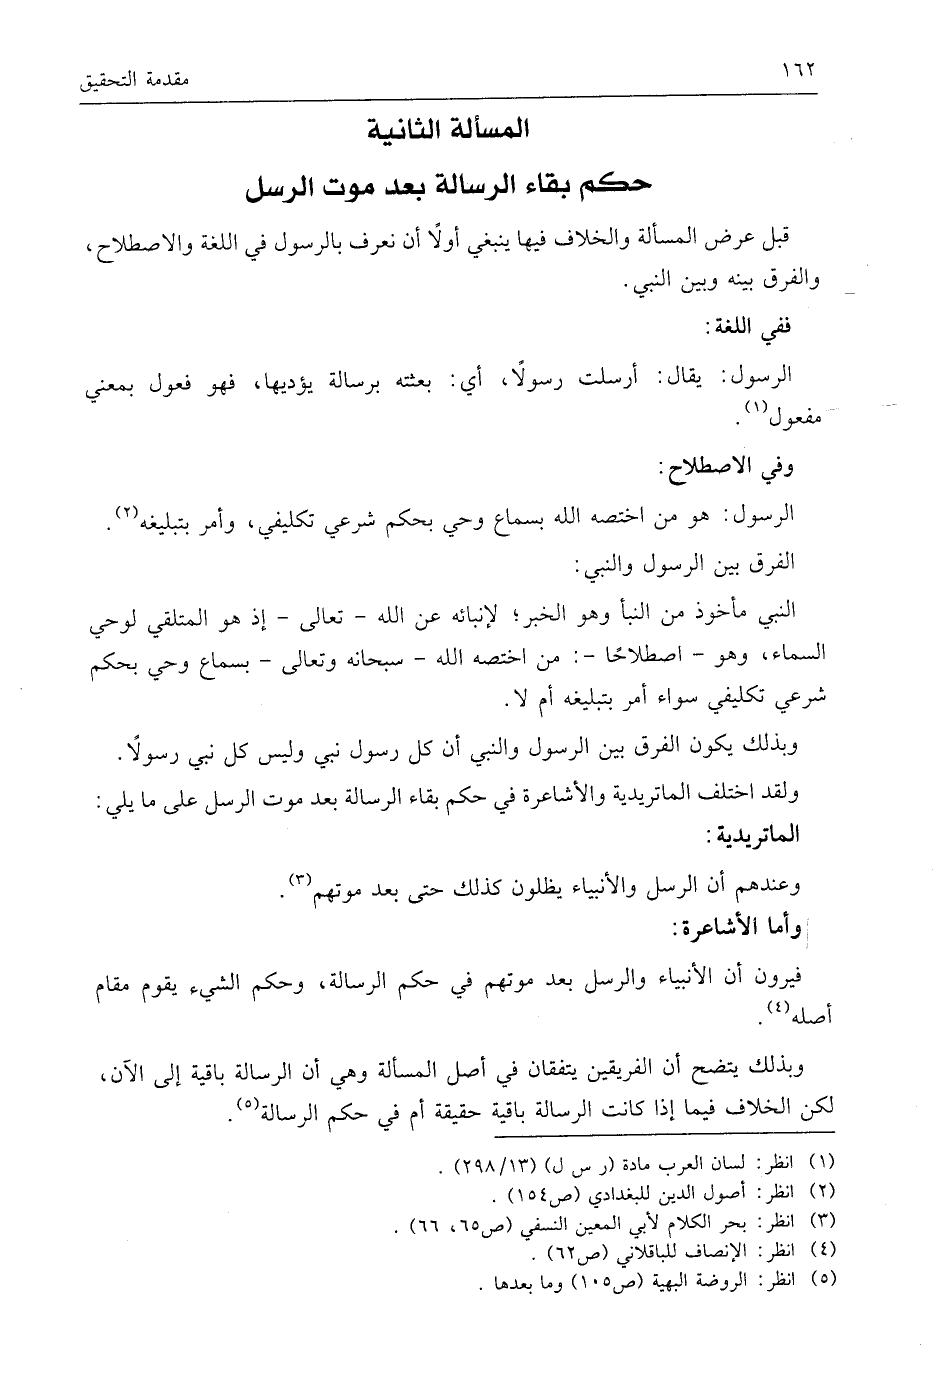 ١٦٢
مقدمة التحقيق
المسألة الثانية
حكم بقاء الرسالة بعد موت الرسل
قبل عرض المسألة والخلاف فيها ينبغي أولًا أن نعرف بالرسول في اللغة والاصطلاح،
والفرق بينه وبين النبي.
ففي اللغة:
الرسول: يقال: أرسلت رسولًا، أي: بعثته برسالة يؤديها، فهو فعول بمعني
مفعول(١).
وفي الاصطلاح:
الرسول: هو من اختصه الله بسماع وحي بحكم شرعي تكليفي، وأمر بتبليغه(٢).
الفرق بين الرسول والنبي:
النبي مأخوذ من النبأ وهو الخبر؛ لإنبائه عن الله - تعالى - إذ هو المتلقي لوحي
السماء، وهو - اصطلاحًا -: من اختصه الله - سبحانه وتعالى - بسماع وحي بحكم
شرعي تكليفي سواء أمر بتبليغه أم لا.
وبذلك يكون الفرق بين الرسول والنبي أن كل رسول نبي وليس كل نبي رسولًا.
ولقد اختلف الماتريدية والأشاعرة في حكم بقاء الرسالة بعد موت الرسل على ما يلي:
الماتريدية:
وعندهم أن الرسل والأنبياء يظلون كذلك حتى بعد موتهم(٣).
وأما الأشاعرة:
فيرون أن الأنبياء والرسل بعد موتهم في حكم الرسالة، وحكم الشيء يقوم مقام
أصله(٤).
وبذلك يتضح أن الفريقين يتفقان في أصل المسألة وهي أن الرسالة باقية إلى الآن،
لكن الخلاف فيما إذا كانت الرسالة باقية حقيقة أم في حكم الرسالة(٥).
(١) انظر: لسان العرب مادة (ر س ل) (٢٩٨/١٣).
(٢) انظر: أصول الدين للبغدادي (ص١٥٤).
(٣) انظر: بحر الكلام لأبي المعين النسفي (ص٦٥، ٦٦).
(٤) انظر: الإنصاف للباقلاني (ص٦٢).
(٥) انظر: الروضة البهية (ص١٠٥) وما بعدها.